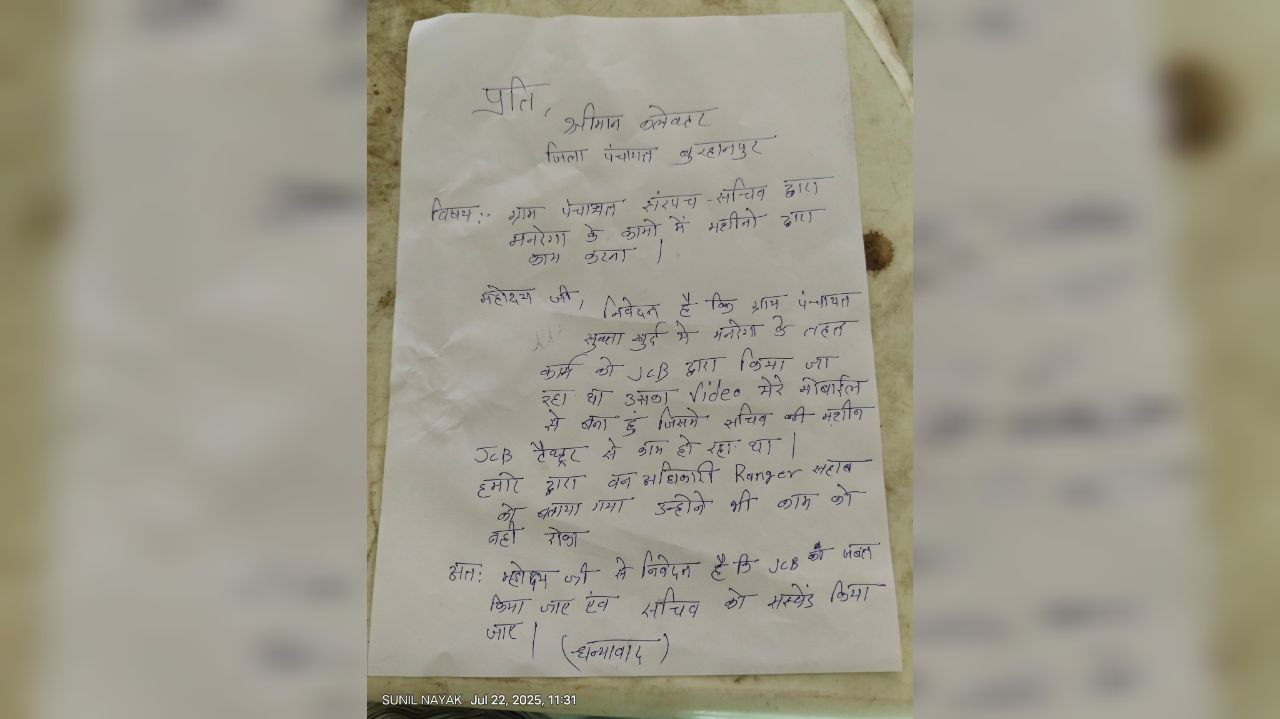 प्रति,
श्रीमान कलेक्टर
जिला पंचायत बुरहानपुर
विषय:- ग्राम पंचायत सरपंच - सचिव द्वारा
मनरेगा के कामों में मशीनों द्वारा
काम करना |
महोदय जी,
निवेदन है कि ग्राम पंचायत
सुक्ता खुर्द में मनरेगा के तहत
कार्य को JCB द्वारा किया जा
रहा था उसका Video मेरे मोबाईल
से बना हुं जिसमे सचिव की मशीन
JCB टैक्टर से काम हो रहा था |
हमारे द्वारा वन अधिकारी Ranger साहब
को बताया गया उन्होने भी काम को
नही रोका
अतः महोदय जी से निवेदन है कि JCB को जब्त
किया जाए एंव सचिव को सस्पेंड किया
जाए |
(धन्यवाद)
SUNIL NAYAK Jul 22, 2025, 11:31